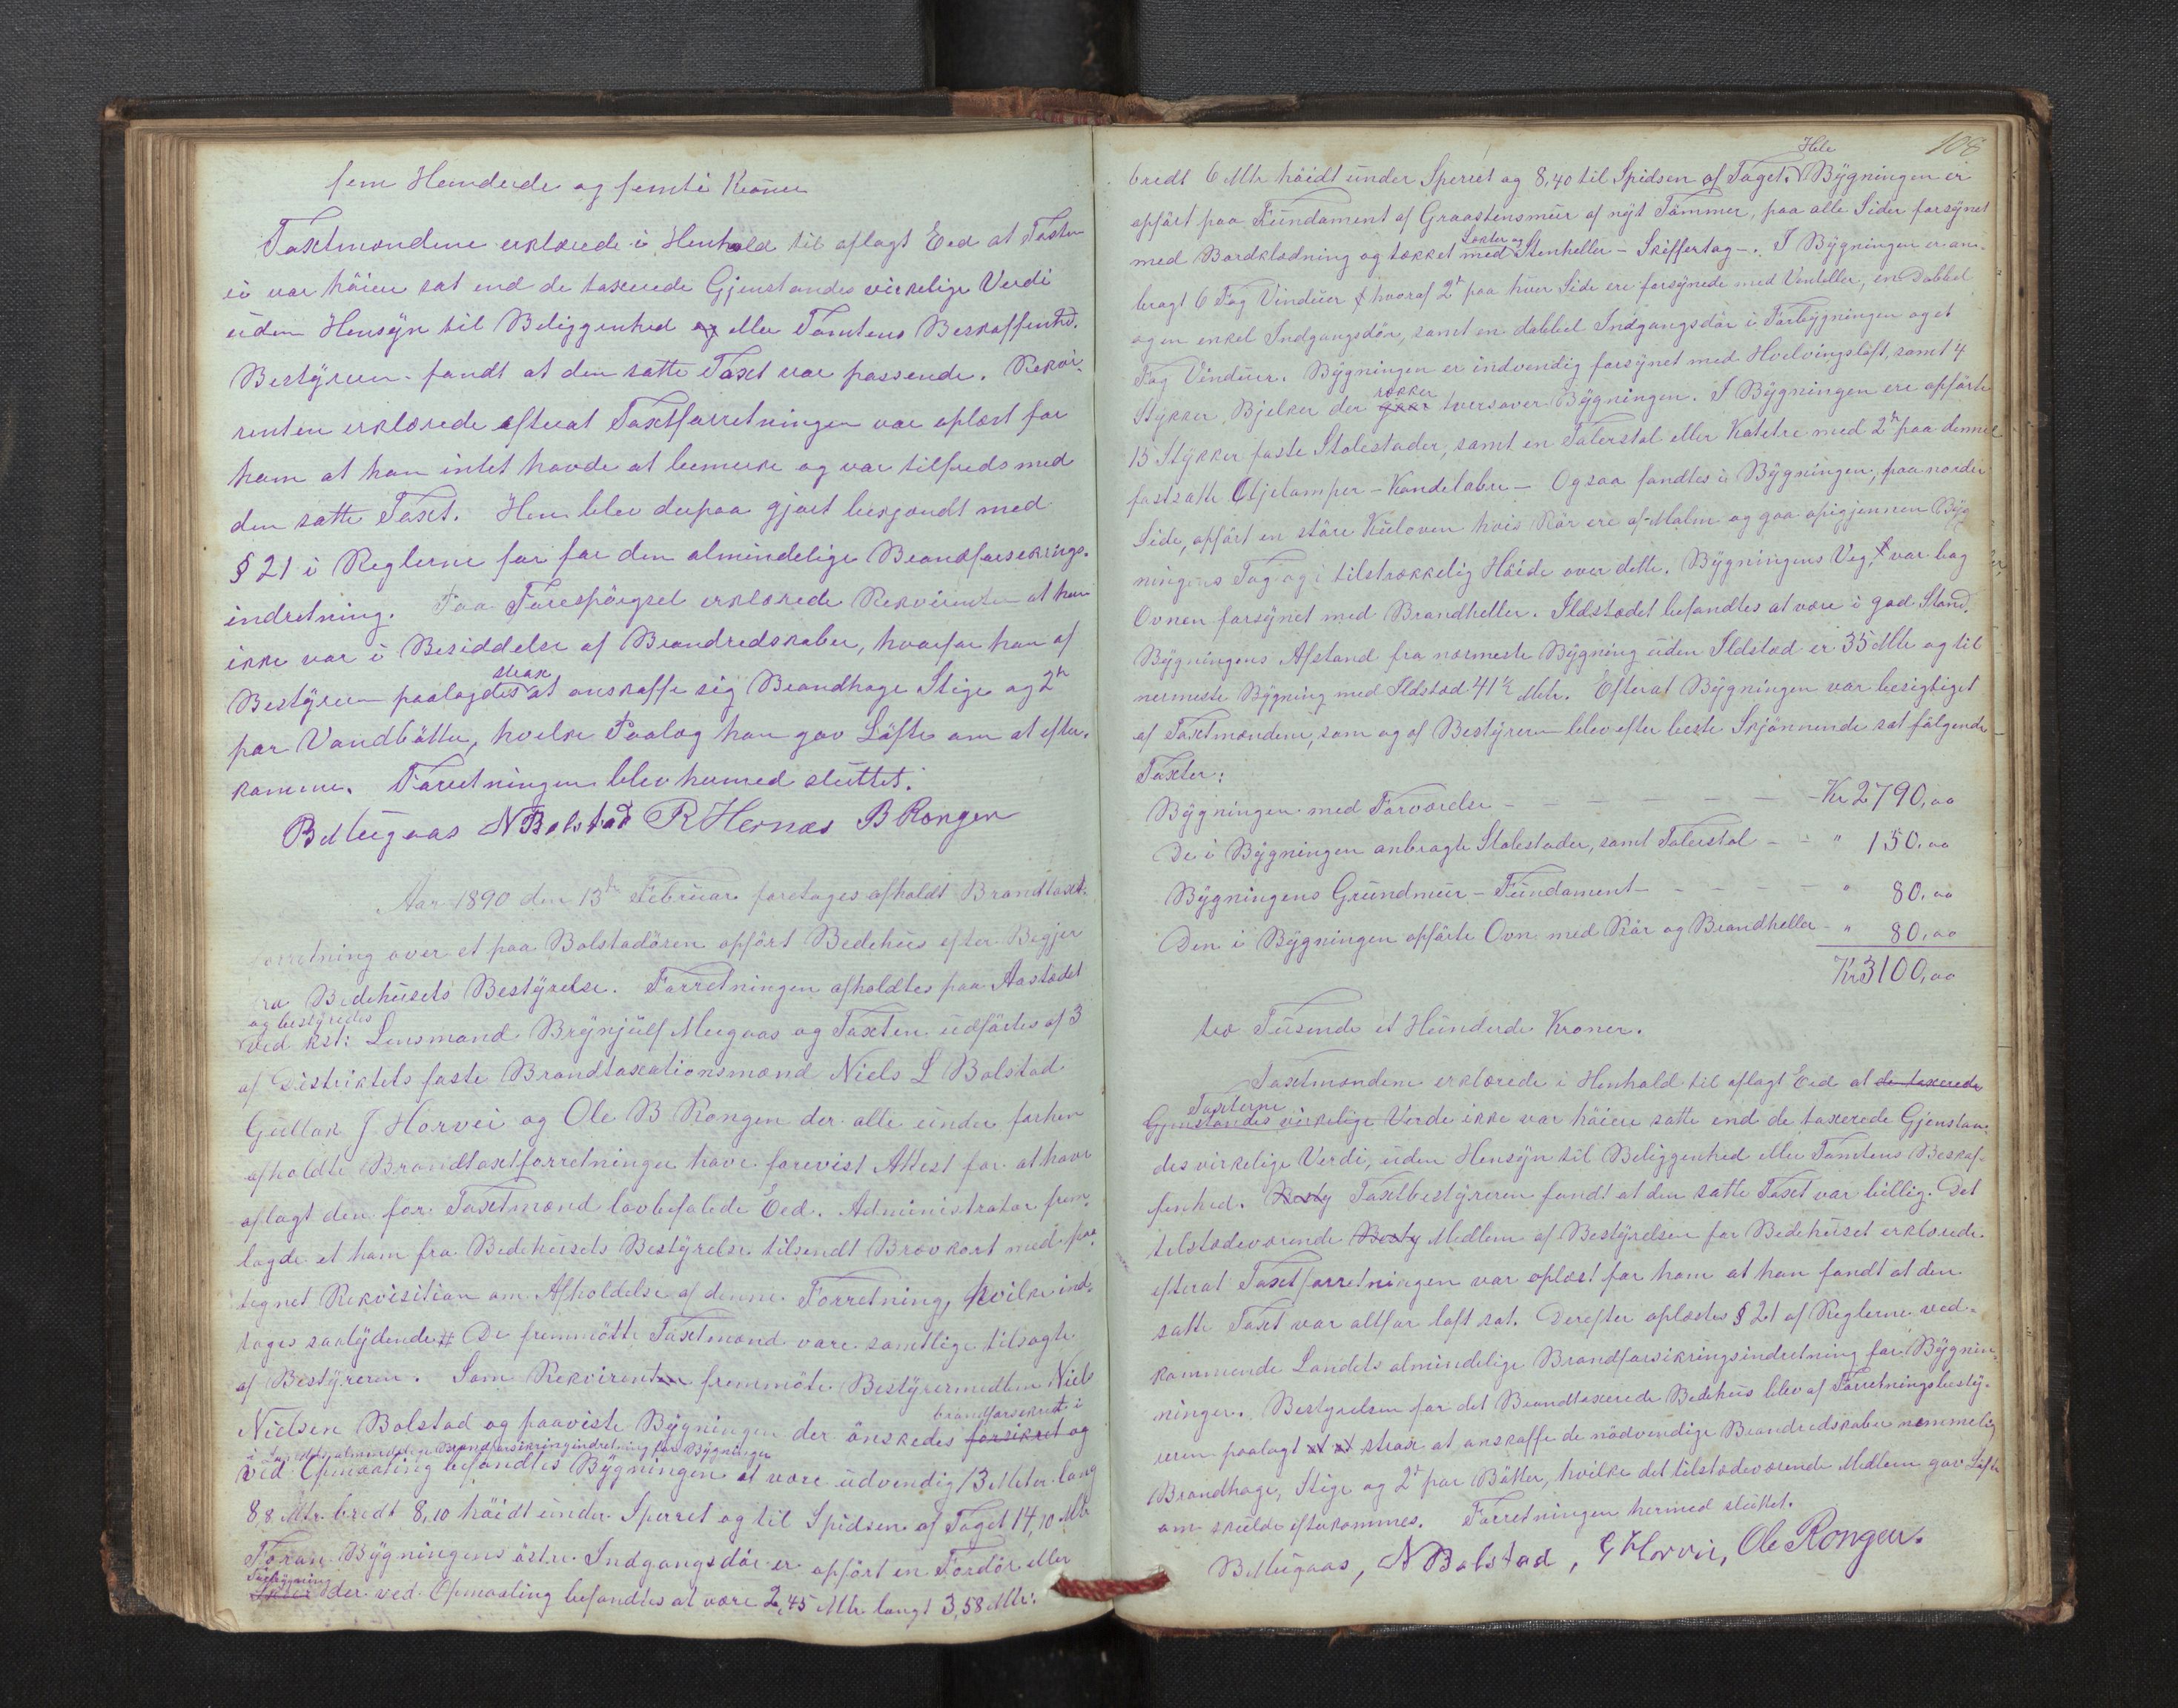 fem Hunderde og femti Kroner
Taxtmændene erklærede i Henhold til aflagt Eed at Taxten
ei var höiere sat end de taxerede Gjenstandes virkelige Verdi
uden Hensyn til Beliggenhed og eller Tomtens Beskaffenhd.
Bestyreren fandt at den satte Taxt var passende. Rekvi-
renten erklærede efterat Taxtforretningen var oplæst for
ham at han intet havde at bemerke og var tilfreds med
den satte Taxt. Han blev derpaa gjort bekjendt med
§ 21 i Reglerne for for den almindelige Brandforsekrings-
indretning. Paa Forespörgsel erklærede Rekvirenten at han
ikke var i Besiddelse af Brandredskaber, hvorfor han af
strax
Bestyreren paalagdes at anskaffe sig Brandhage Stige og 2de
par Vandbötter, hvilke Paalæg han gav Löfte om at efter-
komme. Forretningen blev hermed sluttet.
B Mugaas N Bolstad R Hernæs B Rongen
Aar 1890 den 13de Februar foretoges afholdt Brandtaxt-
forretning over et paa Bolstadören opfört Bedehus efter Begjer
fra Bedehusets Bestyrelse. Forretningen afholdtes paa Aastedet
og bestyredes
ved kst: Lensmand Brynjulf Mugaas og Taxten udförtes af 3
af Distriktets faste Brandtaxationsmænd Niels L Bolstad
Gullak J Horvei og Ole B Rongen der alle under forhen
afholdte Brandtaxtforretninger have forevist Attest for at have
aflagt den for Taxtmænd lovbefalede Eed. Administrator frem-
lagde et ham fra Bedehusets Bestyrelse tilsendt Brevkort med paa
tegnet Rekvisition om Afholdelse af denne Forretning, hvilke ind-
tages saalydende # De fremmötte Taxtmænd vare samtlige tilsagte
af Bestyreren. Som Rekvirenten fremmöte Bestyrermedlem Niels
brandforsekret i
Nielsen Bolstad og paaviste Bygningen der önskedes forsikret og
i Landets almindelige Brandforsikringindretning for Bygninger
Ved Opmaaling befandtes Bygningen at være udvendig 13 Meter lang
8,8 Mtr. bredt 8,10 höidt under Sperret og til Spidsen af Taget 14,10 Mtr
Foran Bygningens östre Indgangsdör er opfört en Fordör eller
Forbygning
der ved Opmaaling befandtes at være 2,45 Mtr. langt 3,58 Mtr:
108
Hele
bredt 6 Mtr höidt under Sperret og 8,40 til Spidsen af Taget. Bygningen er
opfört paa Fundament af Graastensmur af nyt Tömmer, paa alle Sider forsynet
Lekter og
med Bordklædning og tækket med Stenheller - Skiffertag -. I Bygningen er an-
bragt 6 Fag Vinduer hvoraf 2de paa hver Side ere forsynede med Ventiller, en Dobbel
og en enkel Indgangsdör, samt en dobbel Indgangsdör i Forbygningen og et
Fag Vinduer. Bygningen er indvendig forsynet med Hvelvingslöft, samt 4
rekker
Stykker, Bjelker der tversover Bygningen. I Bygningen ere opförte
15 Stykker faste Stolestader, samt en Talerstol eller Katetre med 2de paa denne
fastsatte Oljelamper - Kandelabre - Ogsaa fandtes i Bygningen, paa nordre
Side, opfört en störe Kulovn hvis Rör ere af Malm og gaa opigjennem Byg
ningens Tag og i tilstrækkelig Höide over dette. Bygningens Veg, var bag
Ovnen forsynet med Brandheller. Ildstedet befandtes at være i god Stand.
Bygningens Afstand fra nærmeste Bygning uden Ildsted er 35 Mtr og til
nermeste Bygning med Ildsted 41½ Mtr. Efterat Bygningen var besigtiget
af Taxtmændene, som og af Bestyreren blev efter beste Skjönnende sat fölgende
Taxter:
Bygningen med Forværelse - - - - - - - Kr 2790,00
De i Bygningen anbragte Stolestader, samt Talerstol - - " 150,00
Bygningens Grundmur - Fundament - - - - - " 80,00
Den i Bygningen opförte Ovn med Rör og Brandheller - " 80,00
Kr 3100,00
tre Tusende et Hunderde Kroner.
Taxtmændene erklærede i Henhold til aflagt Eed at de taxerede
Taxterne
Gjenstandes virkelige Verde ikke var höiere satte end de taxerede Gjenstan-
des virkelige Verdi, uden Hensyn til Beliggenhed eller Tomtens Beskaf-
fenhed. Besty Taxtbestyreren fandt at den satte Taxt var billig. Det
tilstedeværende Besty Medlem af Bestyrelsen for Bedehuset erklærede
efterat Taxtforretningen var oplæst for ham at han fandt at den
satte Taxt var altfor laft sat. Derefter oplæstes § 21 af Reglerne ved-
kommende Landets almindelige Brandforsikringsindretning for Bygnin-
ninger. Bestyrelsen for det Brandtaxerede Bedehus blev af Forretningsbesty-
reren paalagt at at strax at anskaffe de nödvendige Brandredskaber nemmelig
Brandhage, Stige og 2de par Bötter, hvilke det tilstedeværende Medlem gav Löfte
om skulde efterkommes. Forretningen hermed sluttet.
B Mugaas, N Bolstad, G Horvei, Ole Rongen.